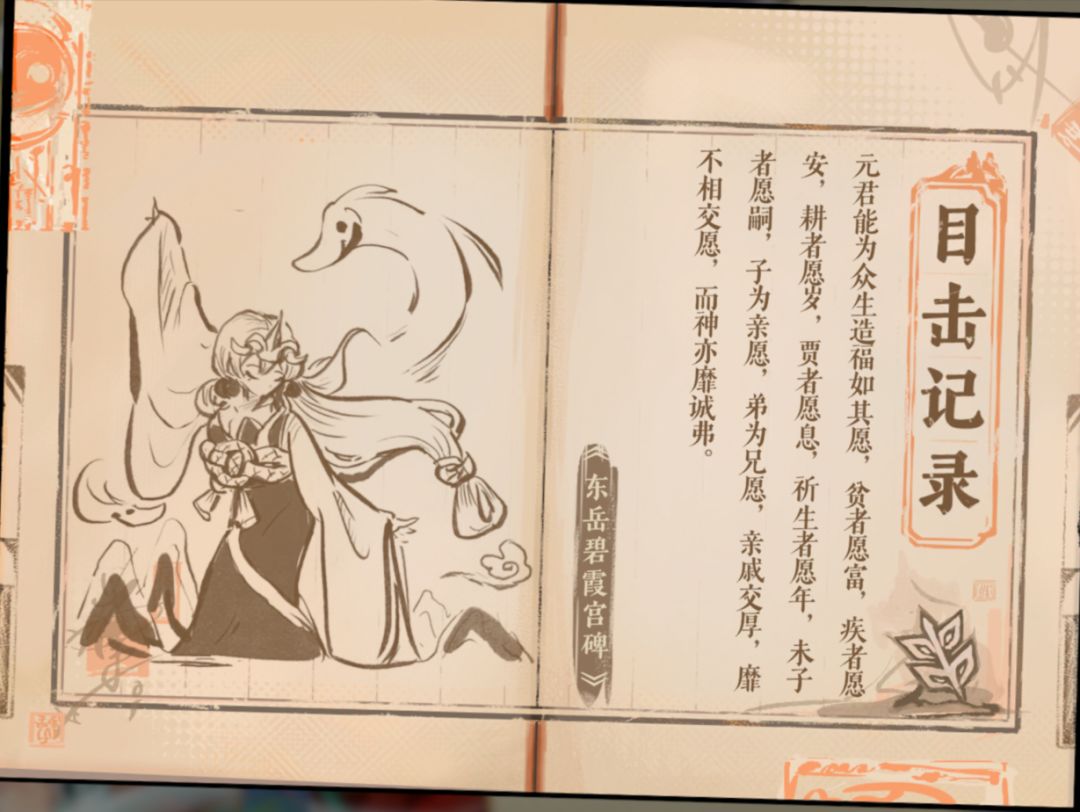 目击记录
元君能为众生造福如其愿，贫者愿富，疾者愿
安，耕者愿岁，贾者愿息，祈生者愿年，未子
者愿嗣，子为亲愿，弟为兄愿，亲戚交厚，靡
不相交愿，而神亦靡诚弗。
《东岳碧霞宫碑》